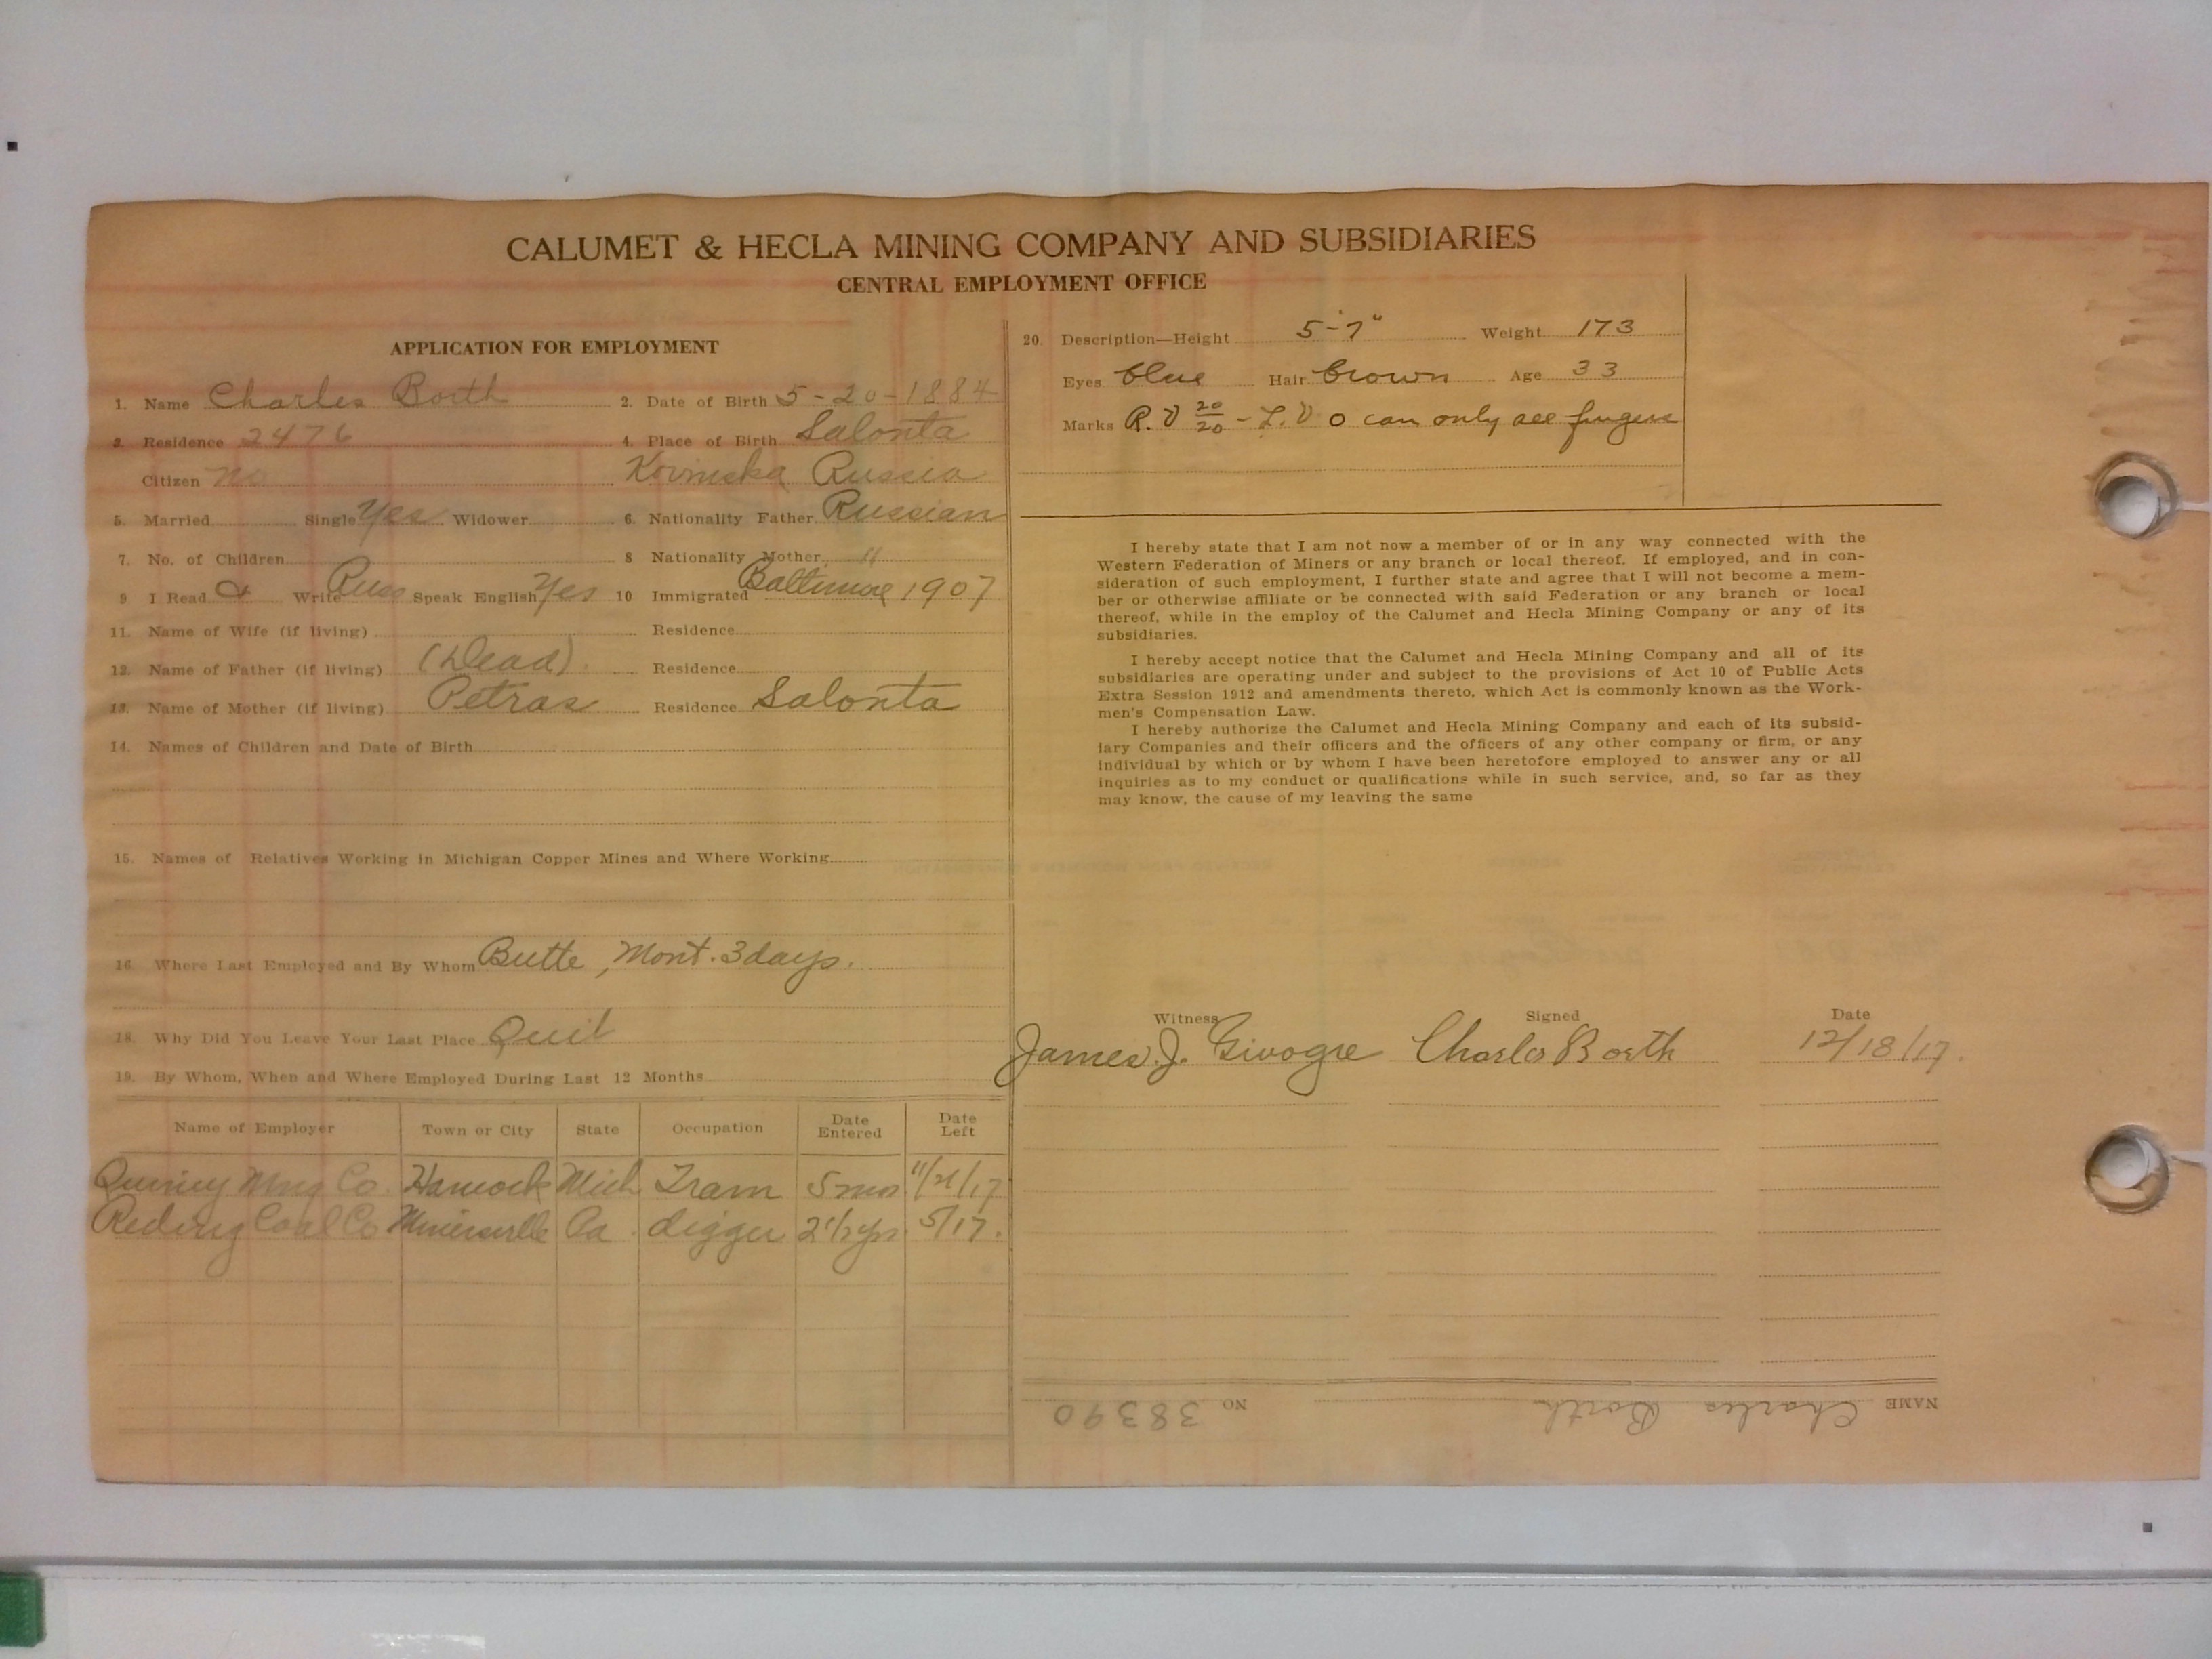 CALUMET & HECLA MINING COMPANY AND SUBSIDIARIES
CENTRAL EMPLOYMENT OFFICE
APPLICATION FOR EMPLOYMENT
1. Name Charles Borth 2. Date of Birth 5-20-1884
3. Residence 2476 4. Place of Birth Salonta
Citizen No Kovinska Russia
5. Married Single Yes Widower 6. Nationality Father Russian
7. No. of Children 8 Nationality Mother "
9 I Read & Write Russ Speak English Yes 10 Immigrated Baltimore 1907
11. Name of Wife (if living) Residence
12. Name of Father (if living) (Dead) Residence
13. Name of Mother (if living) Petras Residence Salonta
14. Names of Children and Date of Birth
15. Names of Relatives Working in Michigan Copper Mines and Where Working
16. Where Last Employed and By Whom Butte, Mont. 3 days.
18. Why Did You Leave Your Last Place Quit
19. By Whom, When and Where Employed During Last 12 Months
Name of Employer Town or City State Occupation Date Entered Date Left
Quincy Mng Co. Hancock Mich Tram 5 mos 11/21/17
Reding Coal Co Minersville Pa digger 2 1/2 yrs 5/17.
20. Description—Height 5-7" Weight 173
Eyes blue Hair brown Age 33
Marks R.V 20/20 - L.V 0 can only see fingers
I hereby state that I am not now a member of or in any way connected with the
Western Federation of Miners or any branch or local thereof. If employed, and in con-
sideration of such employment, I further state and agree that I will not become a mem-
ber or otherwise affiliate or be connected with said Federation or any branch or local
thereof, while in the employ of the Calumet and Hecla Mining Company or any of its
subsidiaries.
I hereby accept notice that the Calumet and Hecla Mining Company and all of its
subsidiaries are operating under and subject to the provisions of Act 10 of Public Acts
Extra Session 1912 and amendments thereto, which Act is commonly known as the Work-
men's Compensation Law.
I hereby authorize the Calumet and Hecla Mining Company and each of its subsid-
iary Companies and their officers and the officers of any other company or firm, or any
individual by which or by whom I have been heretofore employed to answer any or all
inquiries as to my conduct or qualifications while in such service, and, so far as they
may know, the cause of my leaving the same
Witness Signed Date
James J. Givogre Charles Borth 12/18/17.
NAME Charles Borth NO 38390